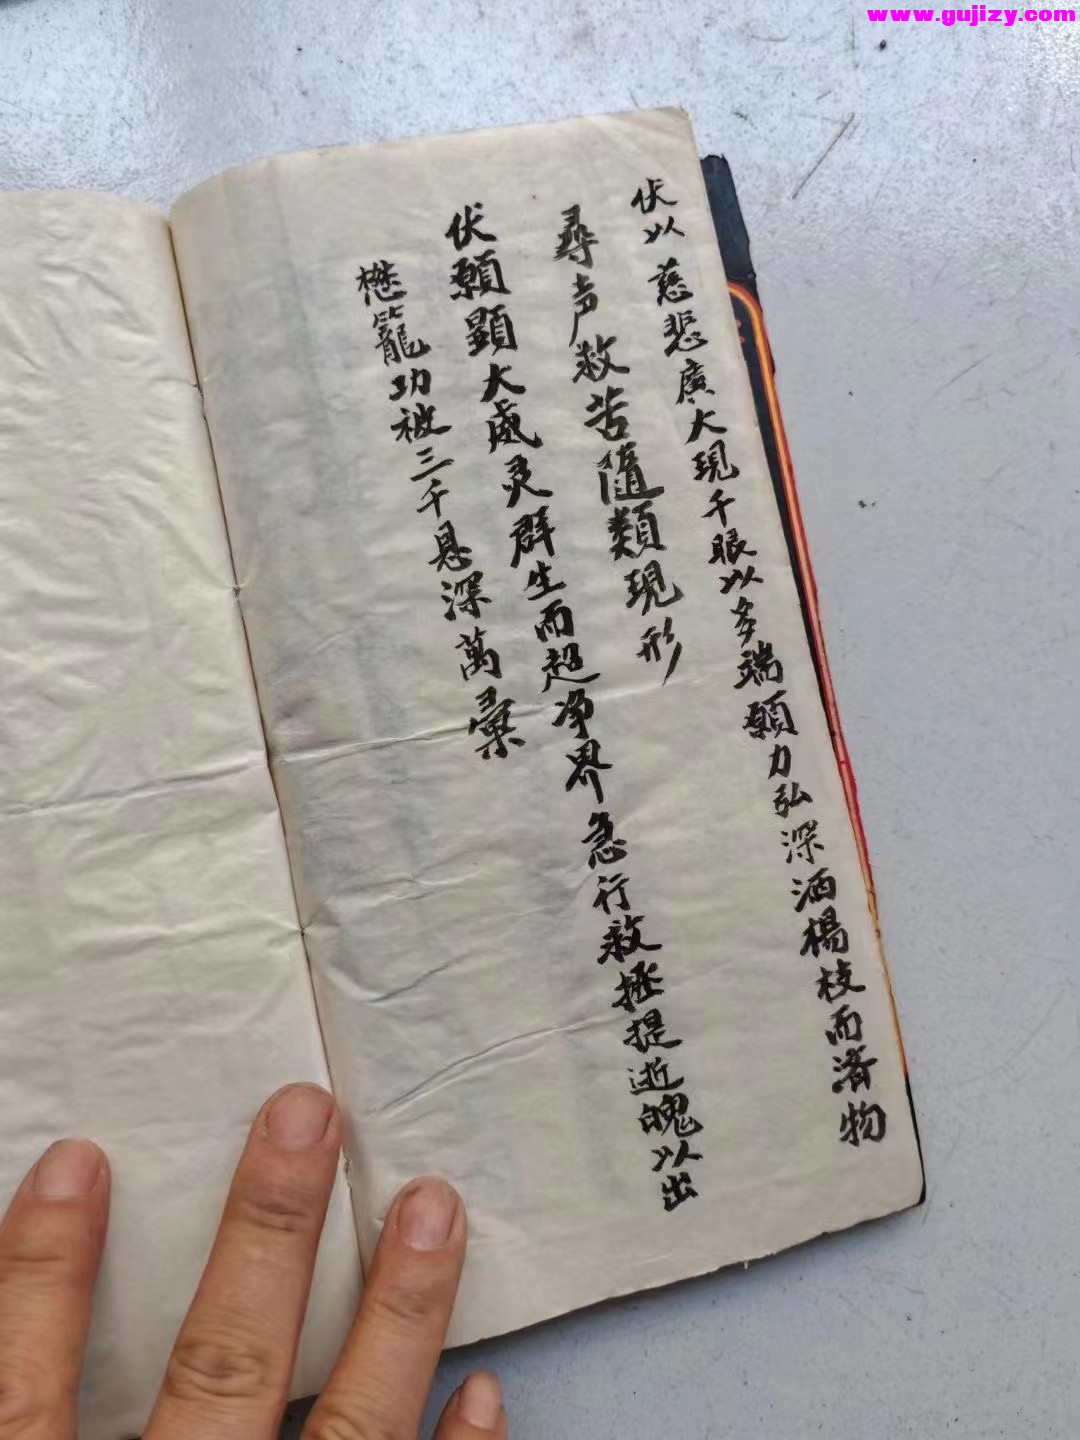 www.gujizy.com
伏以 慈悲廣大現千眼以多端願力弘深洒楊枝而済物
尋声救苦随類現形
伏願顕大威灵群生而超净界急行救拯提逝魄以出
樊籠功被三千恩深萬彙